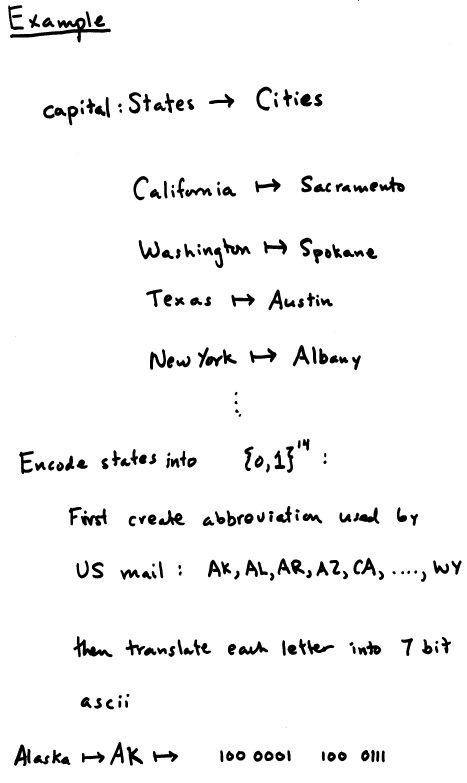 Example
capital : States → Cities
California ↦ Sacramento
Washington ↦ Spokane
Texas ↦ Austin
New York ↦ Albany
⋮
Encode states into {0,1}¹⁴ :
First create abbroviation used by
US mail : AK, AL, AR, AZ, CA, ...., WY
then translate each letter into 7 bit
ascii
Alaska ↦ AK ↦ 100 0001 100 0111